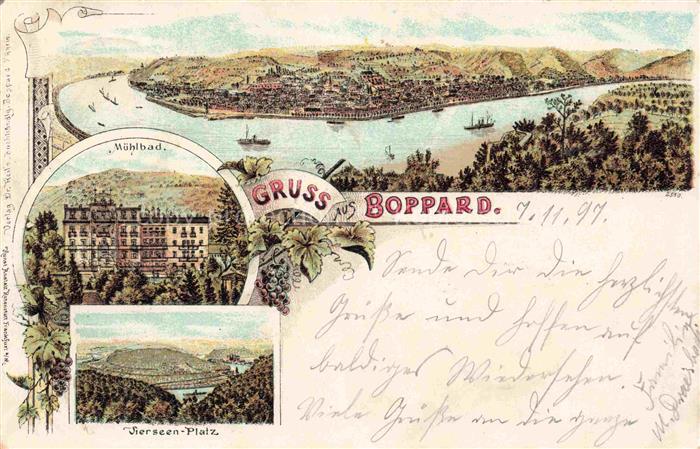 Mühlbad.
GRUSS
AUS
BOPPARD.
7.11.97.
Sende Dir die herzlichsten
Grüße und hoffen auf
baldiges Wiedersehen.
Viele Grüße an die ganze
Familie
Vierseen-Platz